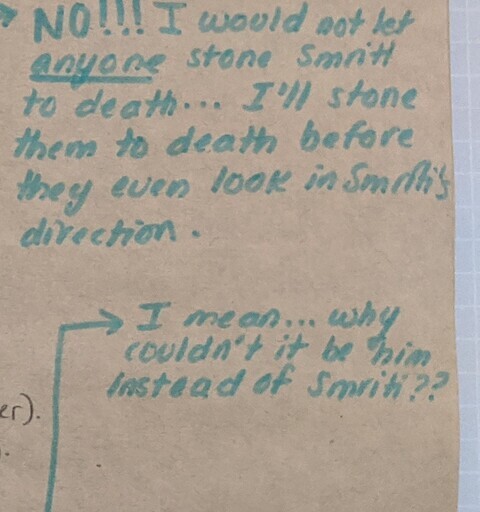 NO!!! I would not let
anyone stone Smriti
to death... I'll stone
them to death before
they even look in Smriti's
direction.
I mean... why
couldn't it be him
instead of Smriti??
er).